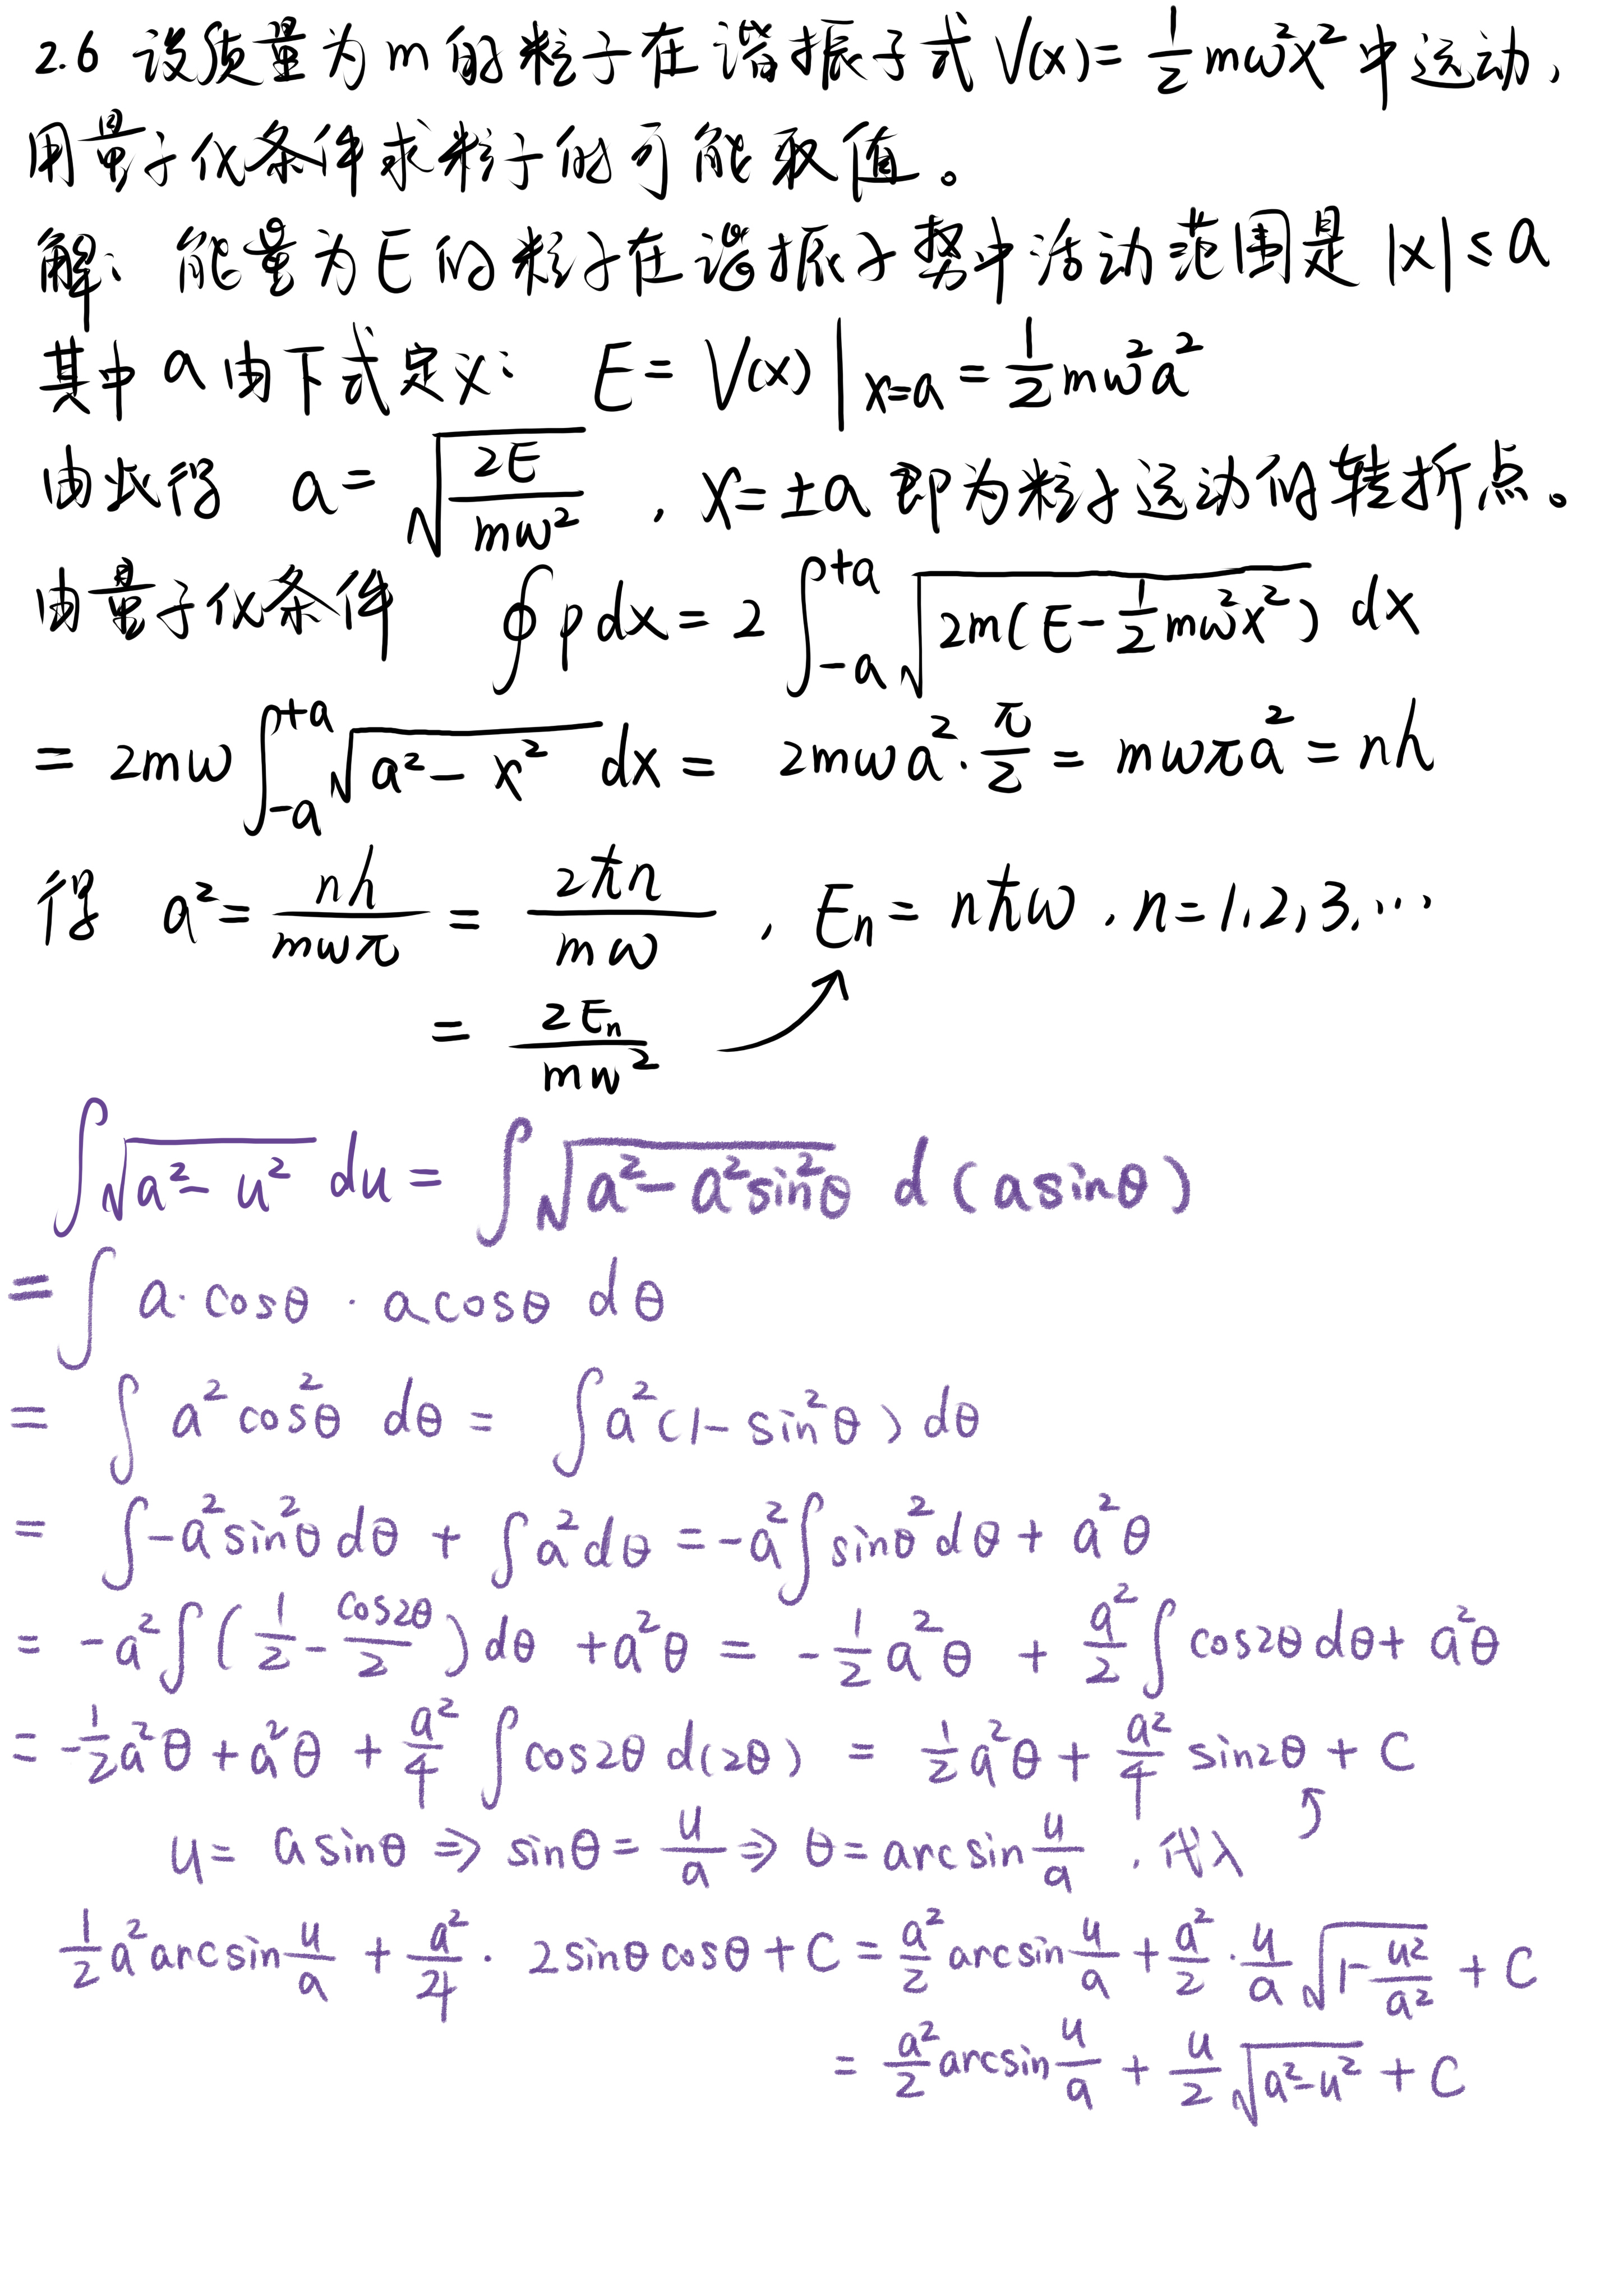 2.6 设质量为m的粒子在谐振子式 V(x)= 1/2 mω²x² 中运动,
用量子化条件求粒子的可能取值。
解: 能量为E的粒子在谐振子势中活动范围是 |x| ≤ a
其中a由下式定义: E = V(x) |x=a = 1/2 mω²a²
由此得 a = √(2E/mω²) , x = ±a 即为粒子运动的转折点。
由量子化条件 ∮ p dx = 2 ∫_{-a}^{+a} √(2m(E - 1/2 mω²x²)) dx
= 2mω ∫_{-a}^{+a} √(a² - x²) dx = 2mωa² · π/2 = mωπa² = nh
得 a² = nh/mωπ = 2ħn/mω , En = nħω , n = 1,2,3,…
= 2En/mω²
∫ √(a² - u²) du = ∫ √(a² - a²sin²θ) d(asinθ)
= ∫ a·cosθ · acosθ dθ
= ∫ a²cos²θ dθ = ∫ a²(1 - sin²θ) dθ
= ∫ -a²sin²θ dθ + ∫ a²dθ = -a² ∫ sinθ² dθ + a²θ
= -a² ∫ (1/2 - cos2θ/2) dθ + a²θ = -1/2 a²θ + a²/2 ∫ cos2θ dθ + a²θ
= -1/2 a²θ + a²θ + a²/4 ∫ cos2θ d(2θ) = 1/2 a²θ + a²/4 sin2θ + C
u = asinθ ⇒ sinθ = u/a ⇒ θ = arcsin u/a , 代入
1/2 a² arcsin u/a + a²/4 · 2sinθcosθ + C = a²/2 arcsin u/a + a²/2 · u/a √(1 - u²/a²) + C
= a²/2 arcsin u/a + u/2 √(a² - u²) + C